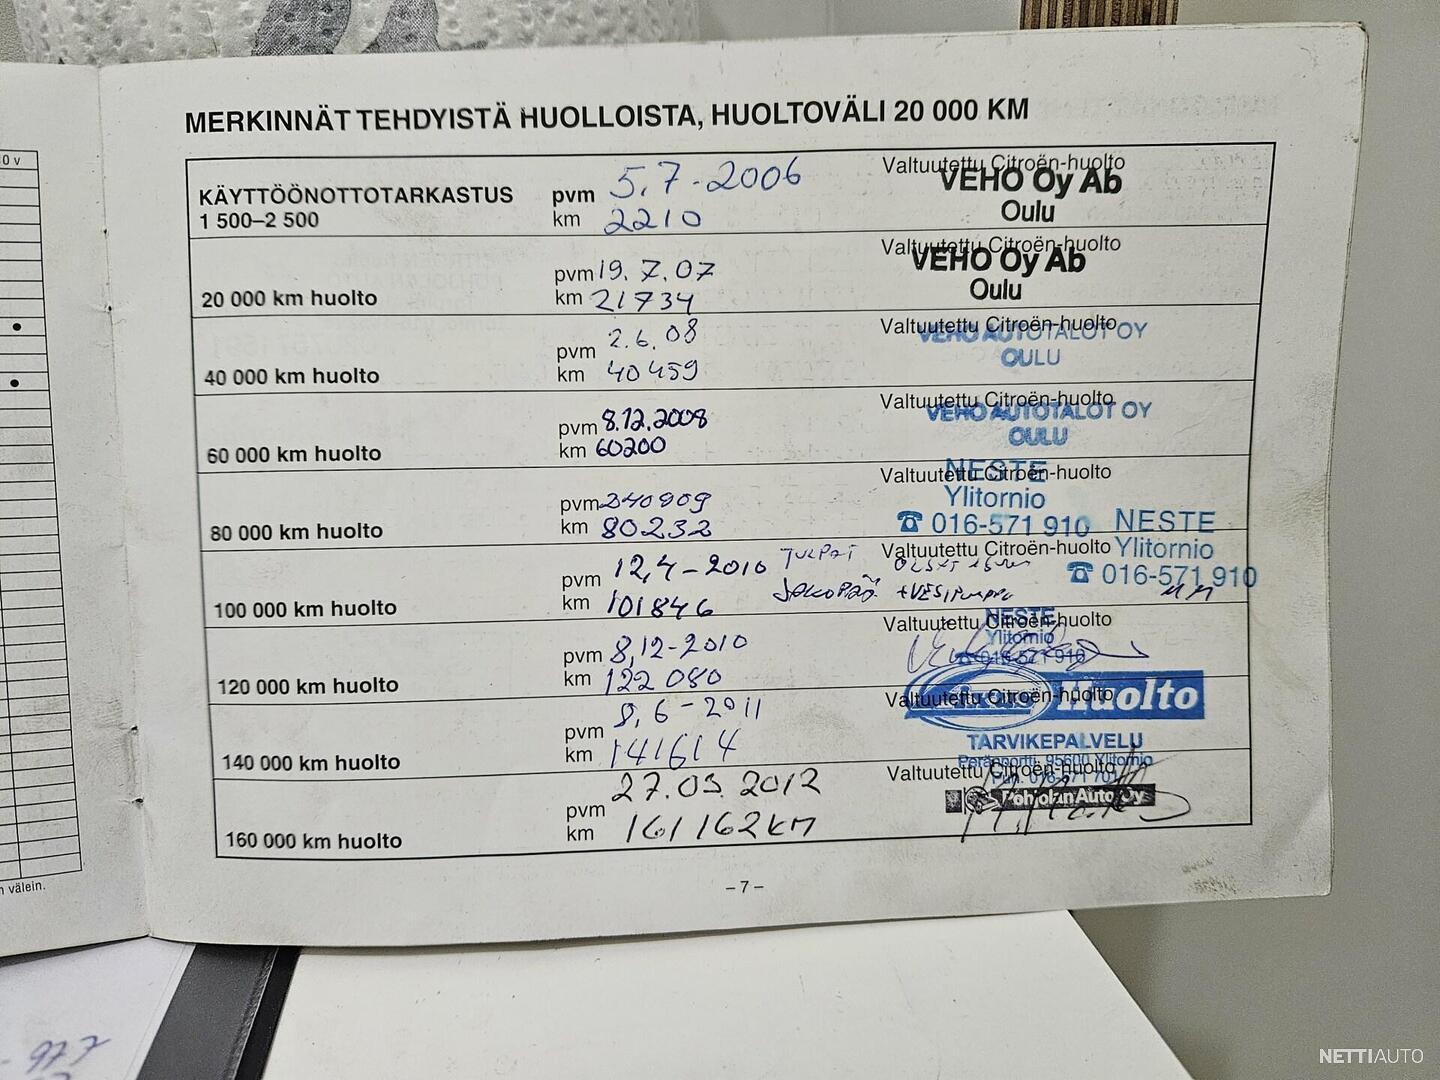 MERKINNÄT TEHDYISTÄ HUOLLOISTA, HUOLTOVÄLI 20 000 KM
KÄYTTÖÖNOTTOTARKASTUS
1 500–2 500
pvm 5.7.-2006
km 2210
Valtuutettu Citroën-huolto
VEHO Oy Ab
Oulu
20 000 km huolto
pvm 19.7.07
km 21734
Valtuutettu Citroën-huolto
VEHO Oy Ab
Oulu
40 000 km huolto
pvm 2.6.08
km 40459
Valtuutettu Citroën-huolto
VEHO AUTOTALOT OY
OULU
60 000 km huolto
pvm 8.12.2008
km 60200
Valtuutettu Citroën-huolto
VEHO AUTOTALOT OY
OULU
80 000 km huolto
pvm 240909
km 80232
Valtuutettu Citroën-huolto
NESTE
Ylitornio
☎ 016-571 910
100 000 km huolto
pvm 12,4-2010 TULPAT
km 101846 JAKOPÄÄ +VESIPUMPPU
Valtuutettu Citroën-huolto
NESTE
Ylitornio
☎ 016-571 910
120 000 km huolto
pvm 8,12-2010
km 122 080
Valtuutettu Citroën-huolto
NESTE
Ylitornio
☎ 016-571 910
140 000 km huolto
pvm 8,6-2011
km 141614
Valtuutettu Citroën-huolto
Huolto
TARVIKEPALVELU
95600 Ylitornio
160 000 km huolto
pvm 27.03.2012
km 161162KM
Valtuutettu Citroën-huolto
Pohjolan Auto Oy
–7–
0 v
n välein.
- 977
NETTIAUTO